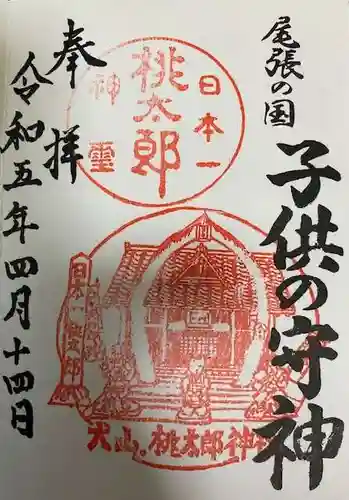 尾張の国
子供の守神
奉拝
令和五年四月十四日
日本一
桃太郎
神璽
日本一桃太郎
犬山・桃太郎神社